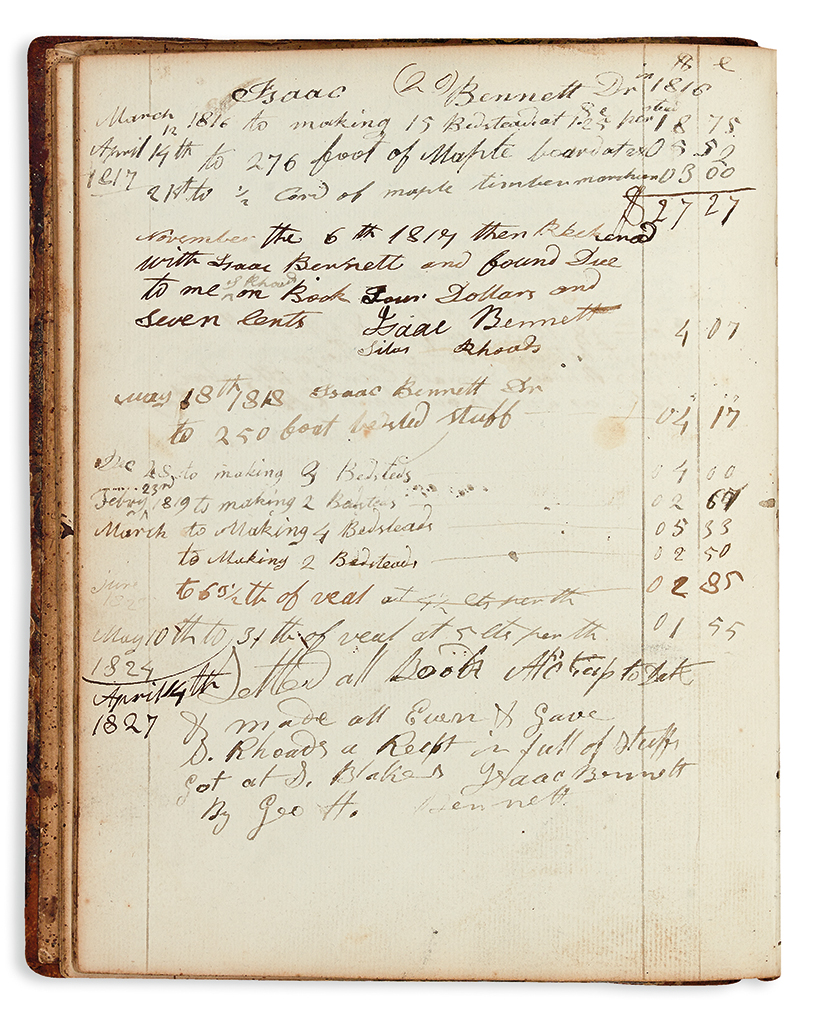 $ c
Isaac (20) Bennett Dr in 1816
March 12 1816 to making 15 Bedsteads at 1 25 per sted 18 75
April 14th to 276 foot of Maple board at 2 05 50
1817 21st to 1/2 Cord of maple timber 03 00
$27 27
November the 6 th 1817 then Reckened
with Isaac Bennett and found Due
to me S Rhoads on Book Four Dollars and
Seven Cents Isaac Bennett 4 07
Silas Rhoads
May 18th 1818 Isaac Bennett Dr
to 250 foot bedsted stuff 04 17
Dec 28 to making 3 Bedsteds 04 00
Febry 23rd 1819 to making 2 02 67
March to Making 4 Bedsteads 05 33
to Making 2 Bedsteads 02 50
June to 63 1/2 th of veal at 4 1/2 cts per th 02 85
May 10th to 31 th of veal at 5 cts per th 01 55
1824
April 14th Settled all Book Acts up to Date
1827 & made all Even & Gave
S. Rhoads a Recpt in full of stuff
got at S. Blakes Isaac Bennett
By Geo H. Bennett